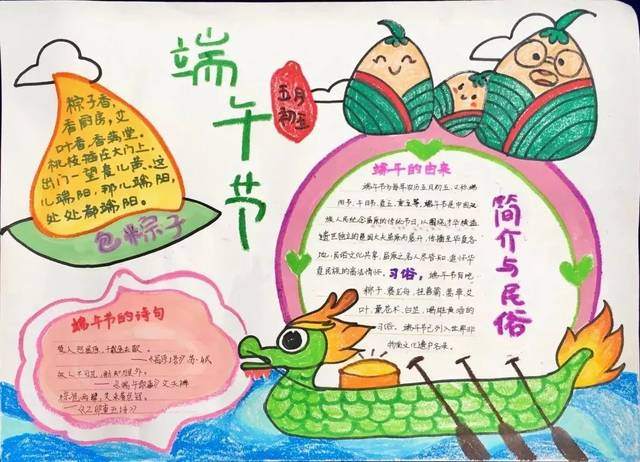 端午节
五月
初五
粽子香,
香厨房,艾
叶香,香满堂。
桃枝插在大门上,
出门一望麦儿黄。这
儿端阳,那儿端阳,
处处都端阳。
包粽子
端午节的诗句
《屈原塔》苏·轼
《端午即事》文天祥
端午的由来
端午节为每年农历五月初五,又称端
阳节、午日节、夏五、重五等,端午节是中国汉
族人民纪念屈原的传统节日,以围绕才华横溢
遗世独立的
民俗文化共享,屈原之名人尽皆知,追怀华
夏民族的高洁情怀。习俗,端午节有吃
粽子、赛龙舟、挂菖蒲、蒿草、艾
叶、薰苍术、白芷、喝雄黄酒的
习俗。端午节已列入世界非
物质文化遗产名录。
简介与民俗